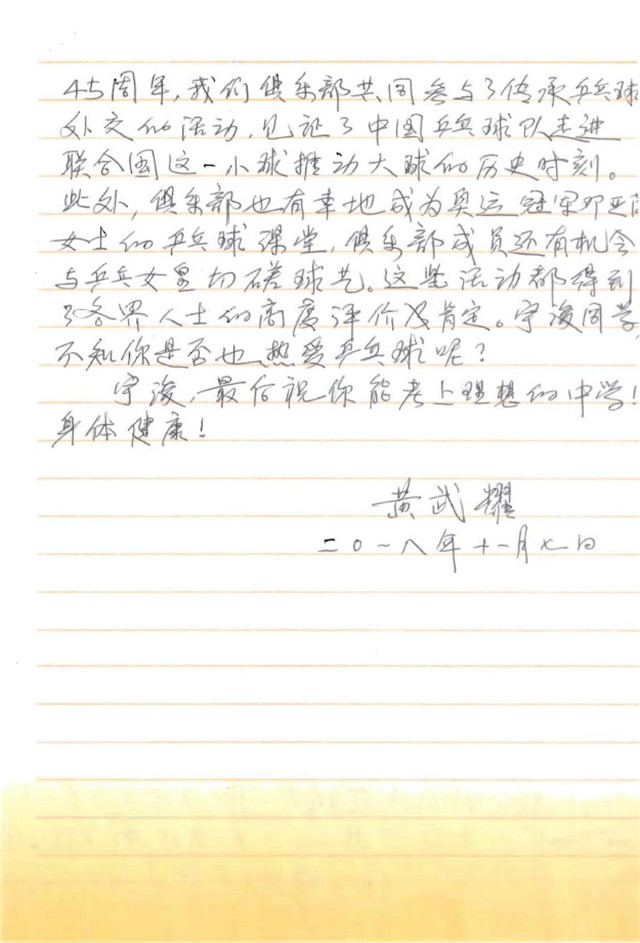 45周年,我们俱乐部共同参与了传承乒乓球
外交的活动,见证了中国乒乓球队走进
联合国这一小球推动大球的历史时刻。
此外,俱乐部也有幸地成为奥运冠军邓亚
女士的乒乓球课堂,俱乐部成员还有机会
与乒乓女皇切磋球艺。这些活动都得到
了各界人士的高度评价及肯定。宇浚同学,
不知你是否也热爱乒乓球呢?
宇浚,最后祝你能考上理想的中学!
身体健康!
黄武耀
二〇一八年十一月七日